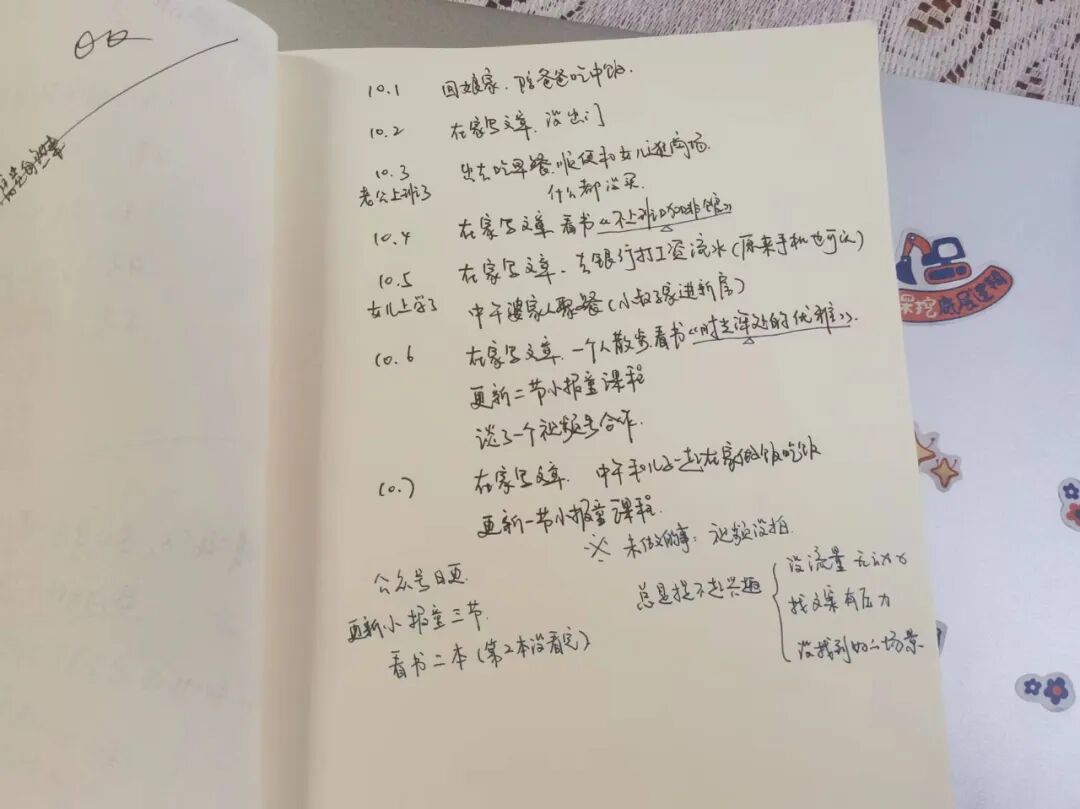 10.1 回娘家、陪爸爸吃中饭.
10.2 在家写文章、没出门
10.3 出去吃早餐、顺便和女儿逛商场.
老公上班了 什么都没买.
10.4 在家写文章 看书《不上班咖啡馆》
10.5 在家写文章、去银行打工资流水(原来手机也可以)
女儿上学了 中午婆家人聚餐(小叔子家进新房)
10.6 在家写文章、一个人散步.看书《时光深处的优雅》.
更新二节小报童课程
谈了一个视频号合作.
10.7 在家写文章. 中午和儿子一起在家做饭吃饭
更新一节小报童课程.
※ 未做的事：视频没拍.
公众号日更
更新小报童三节.
看书二本(第2本没看完)
总是提不起兴趣
没流量
找文案有压力
没找到好的场景